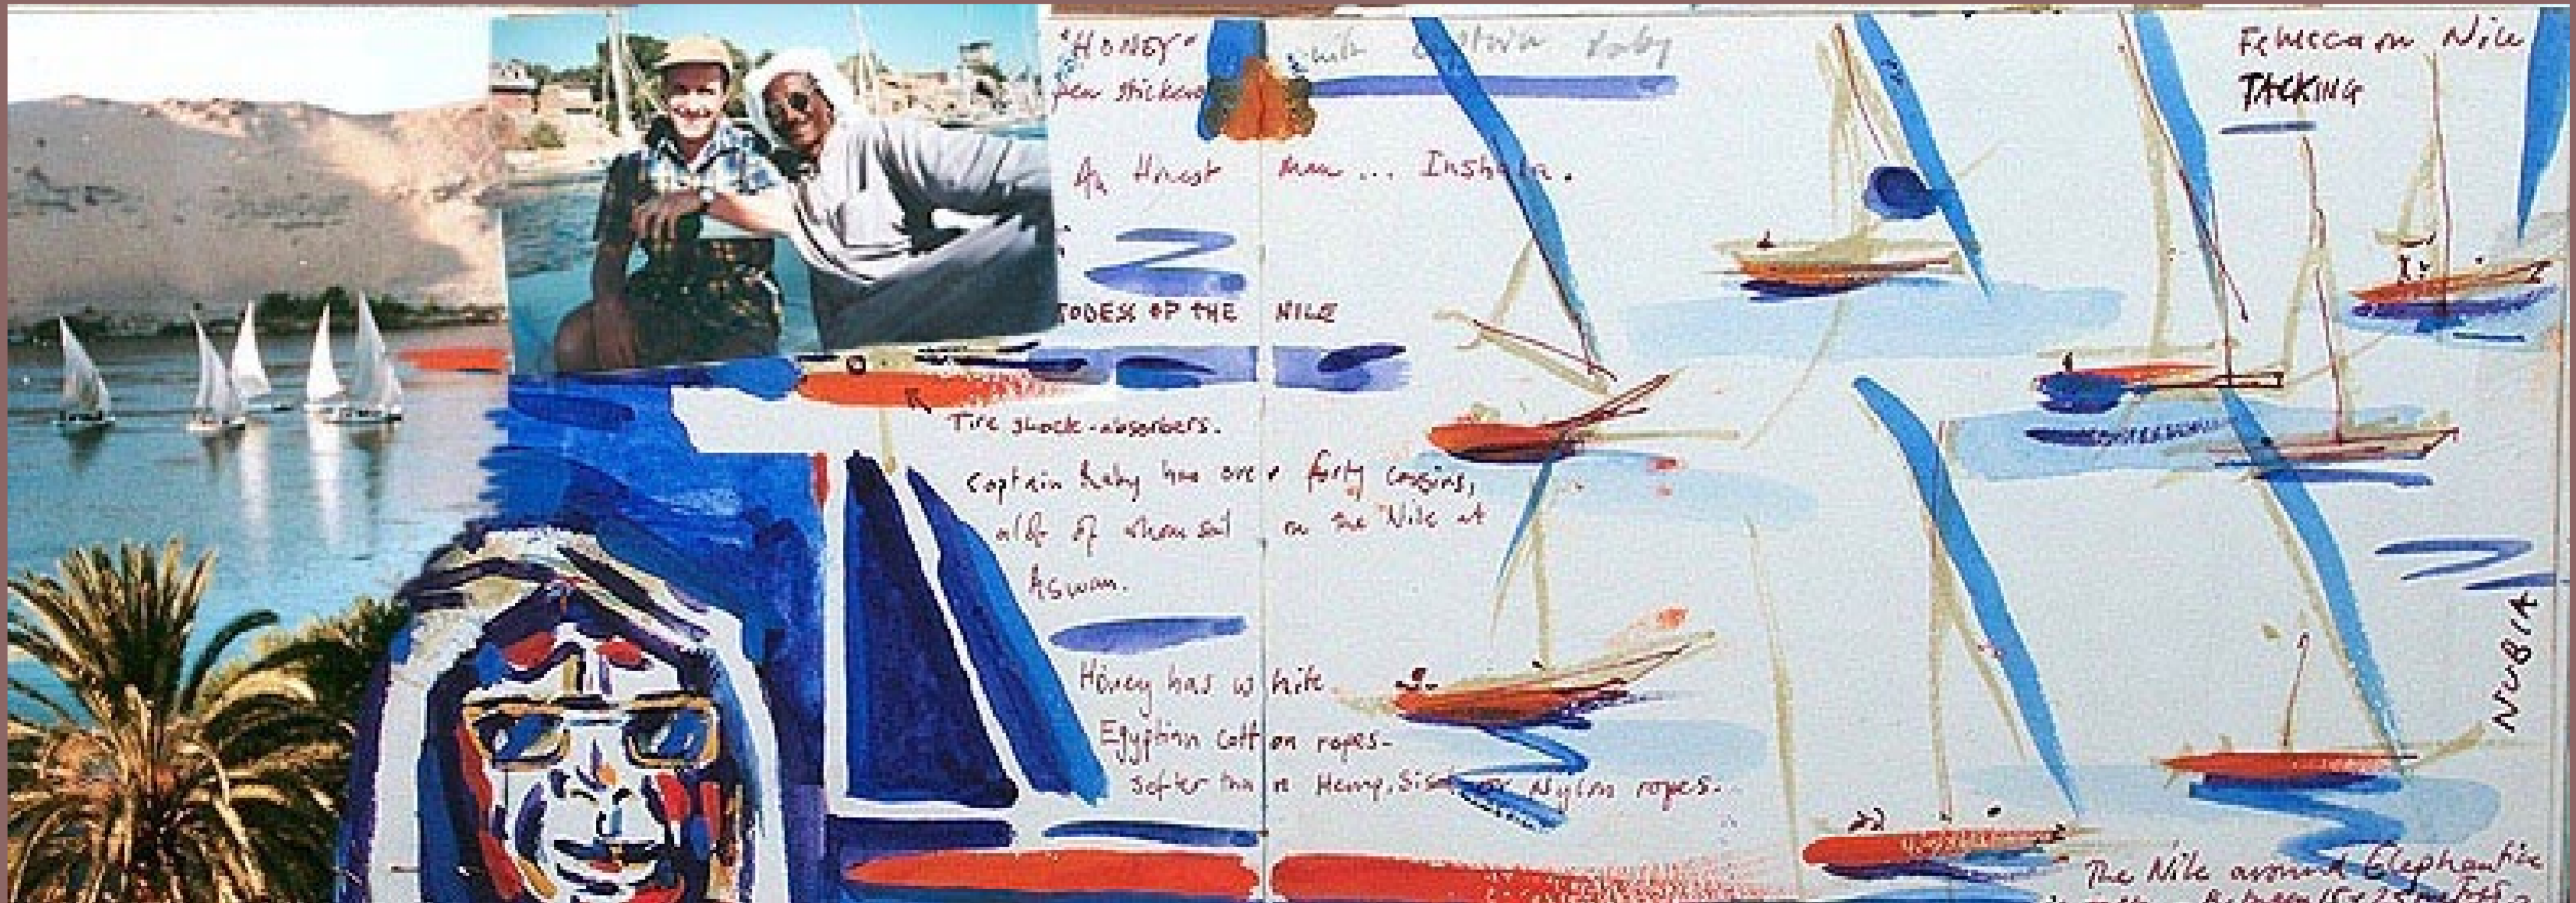 "HONEY" with Captain Raby
pen stickers
An Honest man... Inshala.
ODESS OF THE NILE
Tire shock-absorbers.
Captain Raby has over forty cousins,
all of whom sail on the Nile at
Aswan.
Honey has white
Egyptian Cotton ropes-
softer than Hemp, Sisal or Nylon ropes.
Felucca on Nile
TACKING
NUBIA
The Nile around Elephantine